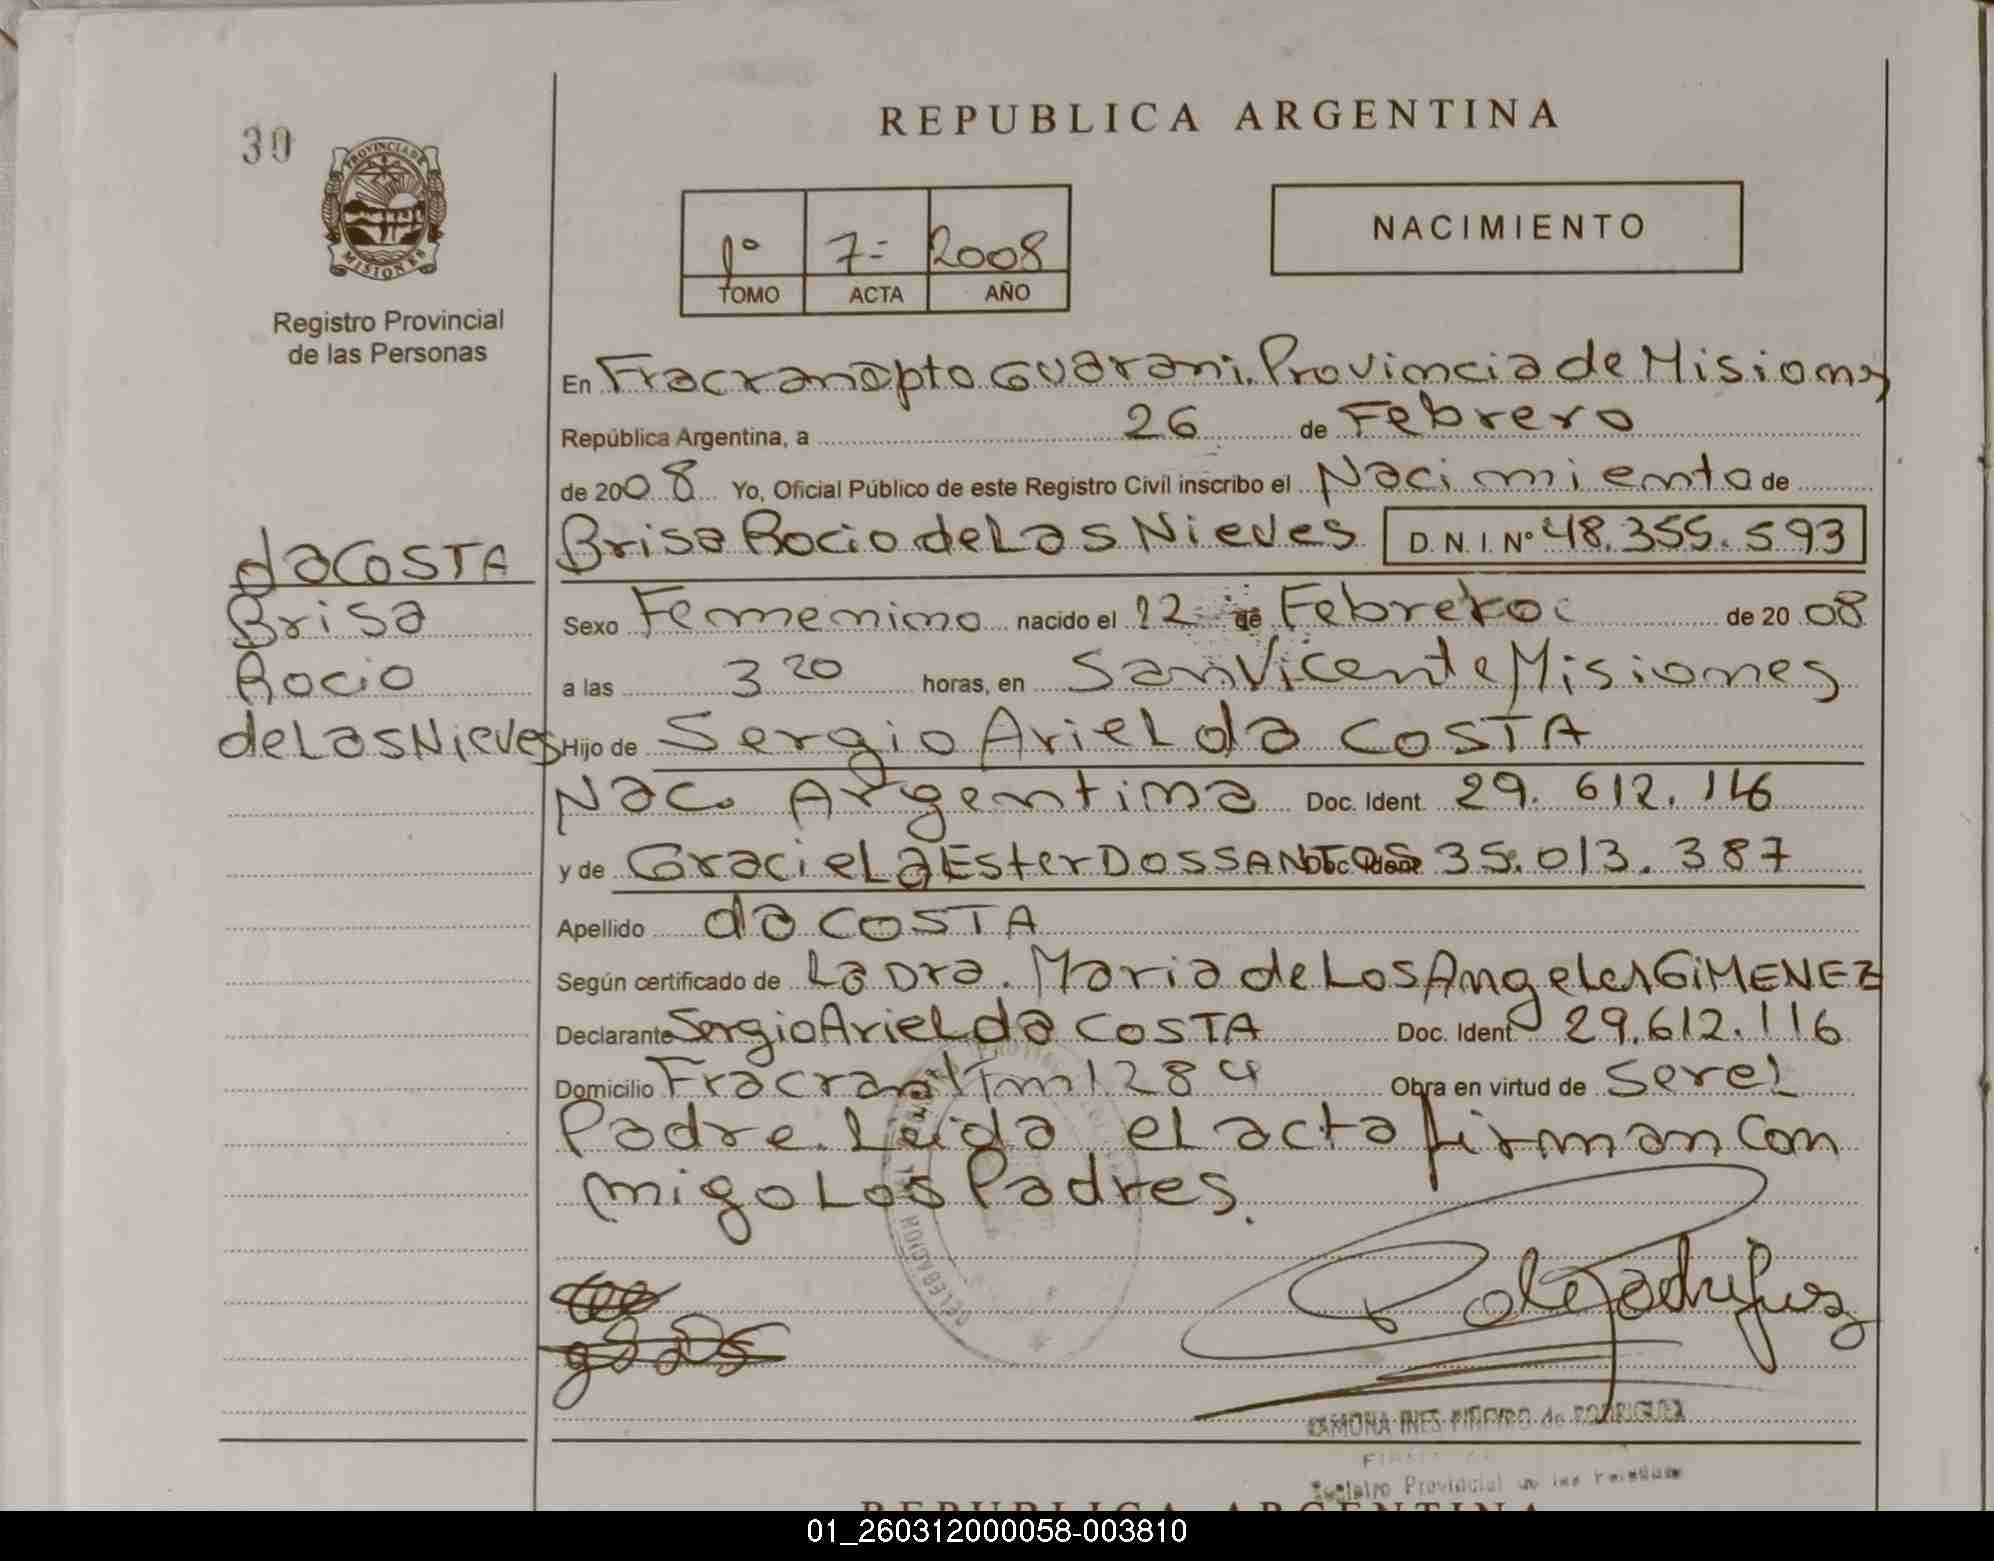 REPUBLICA ARGENTINA
30
PROVINCIA DE
MISIONES
NACIMIENTO
1º 7= 2008
TOMO ACTA AÑO
Registro Provincial
de las Personas
En Fracran Dpto Guarani. Provincia de Misiones
República Argentina, a 26 de Febrero
de 2008 Yo, Oficial Público de este Registro Civil inscribo el Nacimiento de
Brisa Rocio de Las Nieves D.N.I. Nº 48.355.593
da COSTA
Brisa
Rocio
de Las Nieves
Sexo Femenino nacido el 12 de Febrero de 2008
a las 3 20 horas, en San Vicente Misiones
Hijo de Sergio Ariel da COSTA
Nac. Argentina Doc. Ident. 29.612.116
y de Graciela Ester DOS SANTOS Doc. Ident 35.013.387
Apellido da COSTA
Según certificado de La Dra. Maria de Los Angeles GiMENEZ
Declarante Sergio Ariel da COSTA Doc. Ident 29.612.116
Domicilio Fracran 1284 Obra en virtud de Ser el
Padre. Leida el acta firman con
migo Los Padres.
RAMONA INES PIÑEIRO de RODRIGUEZ
Registro Provincial de las Personas
REPUBLICA ARGENTINA
01_260312000058-003810